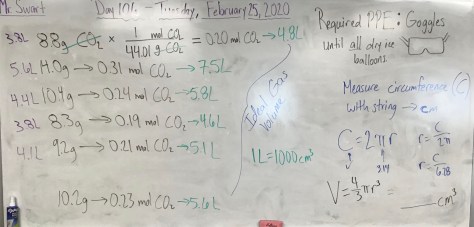 Mr. Swart Day 106 - Tuesday, February 25, 2020
3.3L 8.8g CO₂ × 1 mol CO₂ / 44.01 g CO₂ = 0.20 mol CO₂ → 4.8L
5.6L 14.0g → 0.31 mol CO₂ → 7.5L
4.4L 10.4g → 0.24 mol CO₂ → 5.8L
3.8L 8.3g → 0.19 mol CO₂ → 4.6L
4.1L 9.2g → 0.21 mol CO₂ → 5.1L
10.2g → 0.23 mol CO₂ → 5.6L
Ideal Gas
Volume
1L = 1000 cm³
Required PPE: Goggles
until all dry ice
balloons
Measure circumference (C)
with string → cm
C = 2πr r = C/2π
3.14 r = C/6.28
V = 4/3 πr³ = ____ cm³